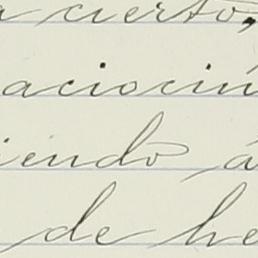 a cierto,
aciocin
iendo á
de he